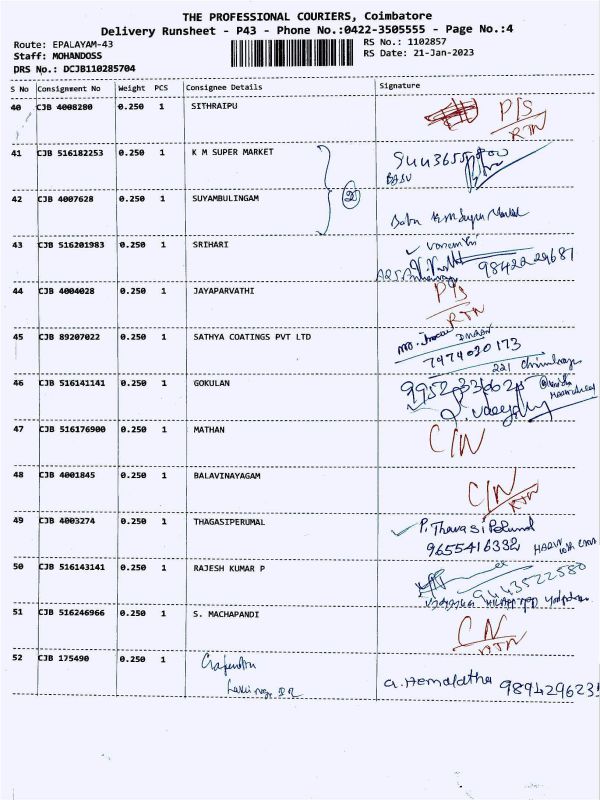 THE PROFESSIONAL COURIERS, Coimbatore
Delivery Runsheet - P43 - Phone No.:0422-3505555 - Page No.:4
Route: EPALAYAM-43
RS No.: 1102857
Staff: MOHANDOSS
RS Date: 21-Jan-2023
DRS No.: DCJB110285704
S No Consignment No Weight PCS Consignee Details Signature
40 CJB 4008280 0.250 1 SITHRAIPU P/S
RTN
41 CJB 516182253 0.250 1 K M SUPER MARKET
BABU
42 CJB 4007628 0.250 1 SUYAMBULINGAM
Babu K m Super Market
43 CJB 516201983 0.250 1 SRIHARI
9842229687
44 CJB 4004028 0.250 1 JAYAPARVATHI P/S
RTN
45 CJB 89207022 0.250 1 SATHYA COATINGS PVT LTD
7474020173
221
46 CJB 516141141 0.250 1 GOKULAN
47 CJB 516176900 0.250 1 MATHAN C/N
48 CJB 4001845 0.250 1 BALAVINAYAGAM C/N
RTN
49 CJB 4003274 0.250 1 THAGASIPERUMAL
9655416332
50 CJB 516143141 0.250 1 RAJESH KUMAR P
9443522580
51 CJB 516246966 0.250 1 S. MACHAPANDI C/N
RTN
52 CJB 175490 0.250 1 G. Hemalatha 989429623